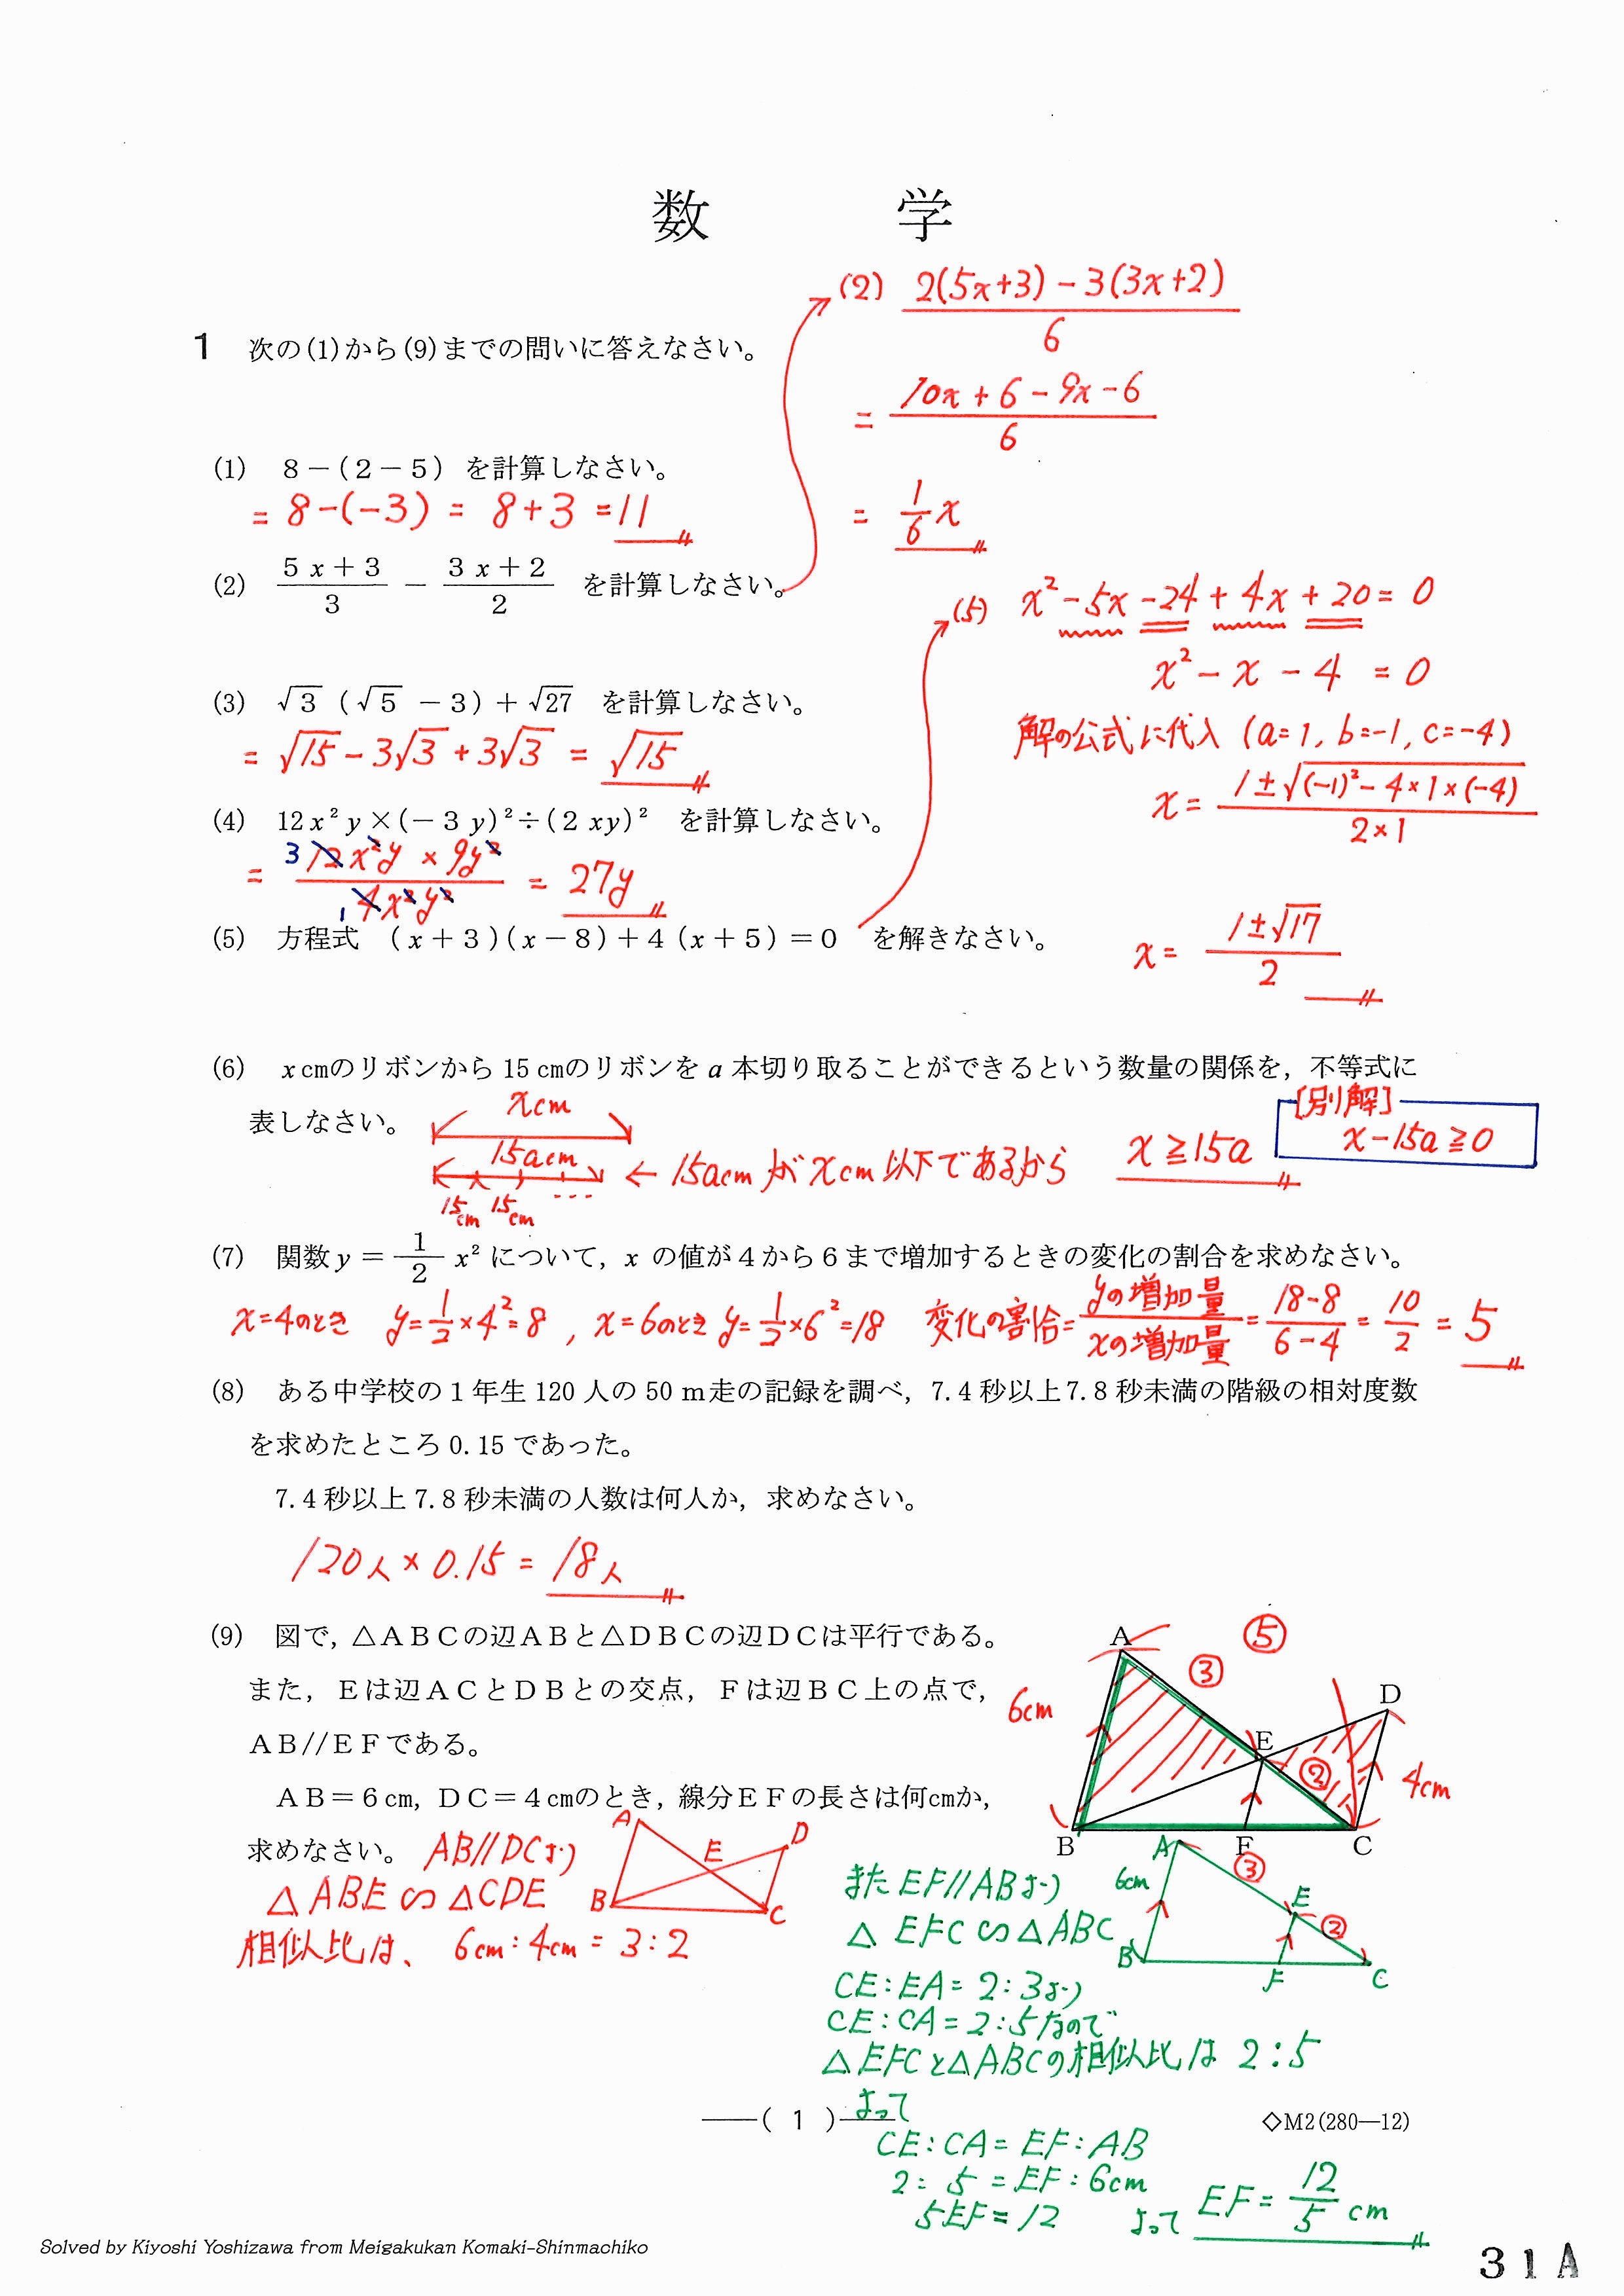 数 学
1 次の(1)から(9)までの問いに答えなさい。
(1) 8-(2-5) を計算しなさい。
= 8-(-3) = 8+3 = 11
(2) (5x+3)/3 - (3x+2)/2 を計算しなさい。
(2) (2(5x+3)-3(3x+2))/6
= (10x+6-9x-6)/6
= 1/6 x
(3) √3(√5-3)+√27 を計算しなさい。
= √15-3√3+3√3 = √15
(4) 12x²y×(-3y)²÷(2xy)² を計算しなさい。
= (12x²y × 9y²)/(4x²y²) = 27y
3
1
(5) 方程式 (x+3)(x-8)+4(x+5)=0 を解きなさい。
(5) x²-5x-24+4x+20=0
x²-x-4 =0
解の公式に代入 (a=1, b=-1, c=-4)
x= (1±√((-1)²-4×1×(-4)))/(2×1)
x= (1±√17)/2
(6) xcmのリボンから15cmのリボンをa本切り取ることができるという数量の関係を，不等式に
表しなさい。
xcm
15acm
15cm 15cm ...
← 15acmがxcm以下であるから x≧15a
[別解]
x-15a≧0
(7) 関数y=1/2 x²について，xの値が4から6まで増加するときの変化の割合を求めなさい。
x=4のとき y=1/2×4²=8 , x=6のとき y=1/2×6²=18 変化の割合=yの増加量/xの増加量=(18-8)/(6-4)=10/2=5
(8) ある中学校の1年生120人の50m走の記録を調べ，7.4秒以上7.8秒未満の階級の相対度数
を求めたところ0.15であった。
7.4秒以上7.8秒未満の人数は何人か，求めなさい。
120人×0.15=18人
(9) 図で，△ABCの辺ABと△DBCの辺DCは平行である。
また，Eは辺ACとDBとの交点，Fは辺BC上の点で，
AB//EFである。
AB=6cm，DC=4cmのとき，線分EFの長さは何cmか，
求めなさい。
A ⑤
③
D
6cm
E
②
4cm
B F C
AB//DCより
△ABE∽△CDE
相似比は、 6cm:4cm=3:2
A
D
E
B
C
また EF//ABより
△EFC∽△ABC
CE:EA=2:3より
CE:CA=2:5なので
△EFCと△ABCの相似比は 2:5
よって
CE:CA=EF:AB
2:5=EF:6cm
5EF=12 よって EF=12/5 cm
A
③
6cm
E
②
B
F
C
—( 1 )—
◇M2(280—12)
Solved by Kiyoshi Yoshizawa from Meigakukan Komaki-Shinmachiko
31A